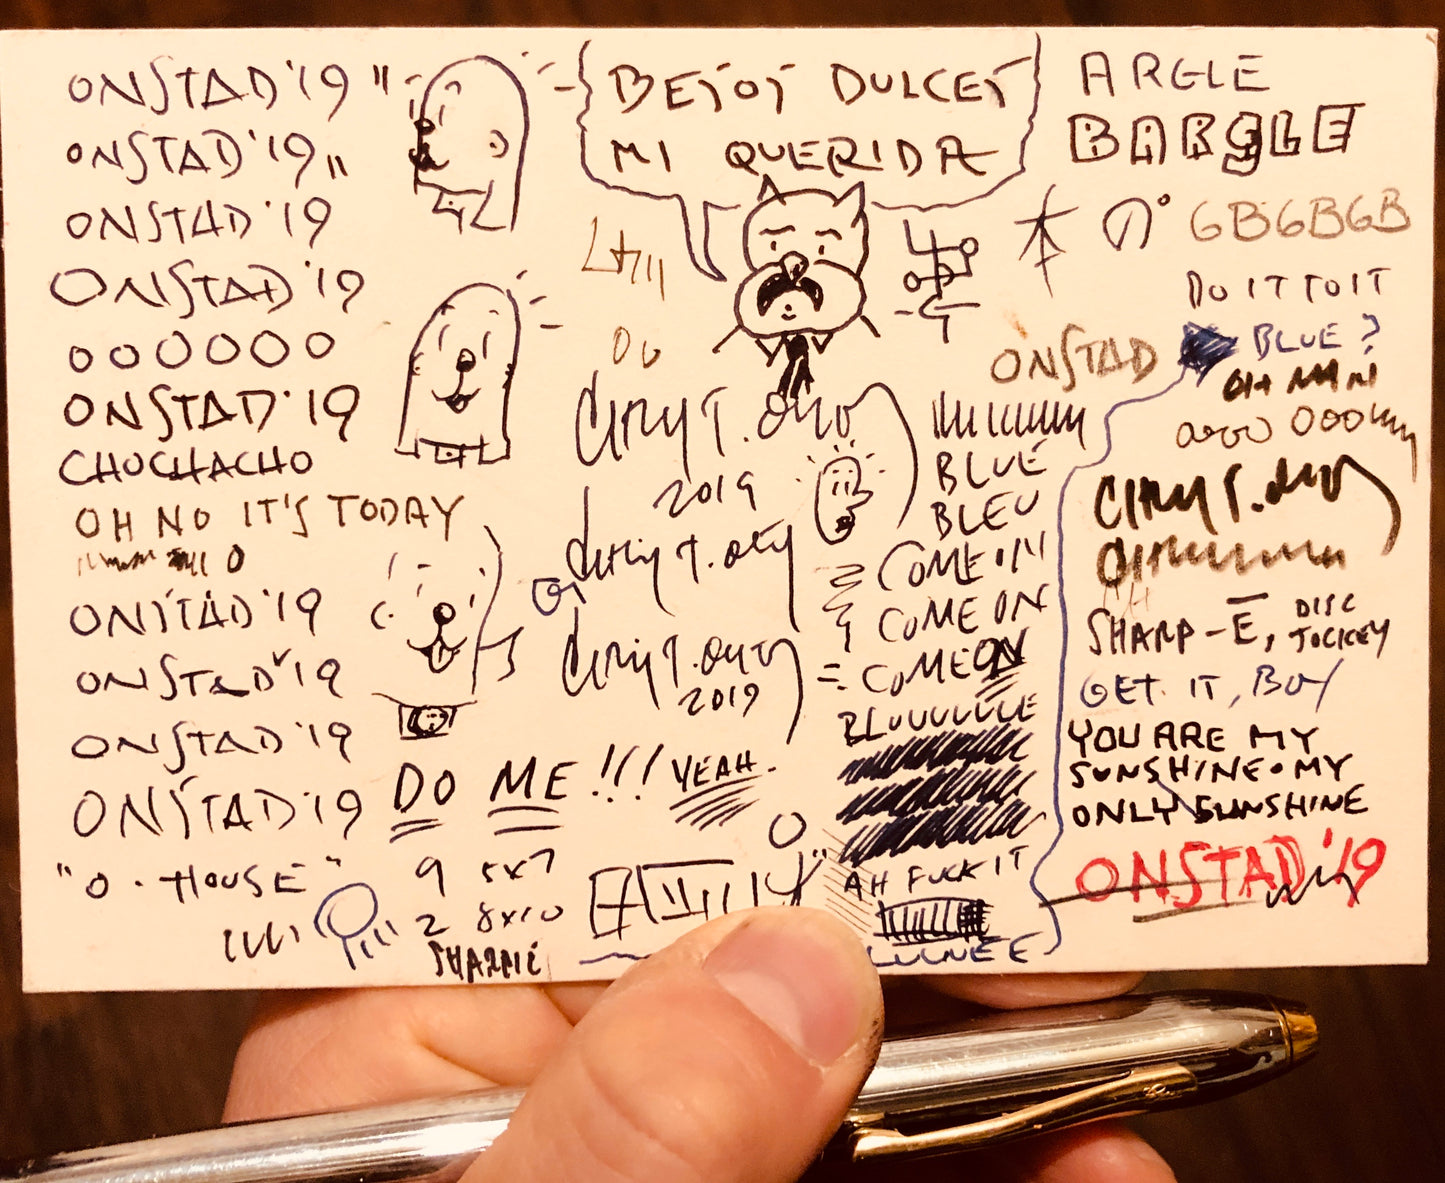 ONSTAD '19 "
ONSTAD '19 "
ONSTAD '19
ONSTAD '19
OOOOOO
ONSTAD '19
CHUCHACHO
OH NO IT'S TODAY
ONSTAD '19
ONSTAD '19
ONSTAD '19
ONSTAD '19
"O-HOUSE"
BESOS DULCES
MI QUERIDA
2019
2019
DO ME!!! YEAH.
9 5x7
2 8x10
SHARPIE
BLUE
BLEU
COME ON
COME ON
COME ON
BLUUUUUUE
AH FUCK IT
ARGLE
BARGLE
GBGBGB
DO IT TO IT
BLUE?
OH MAN
ONSTAD
SHARP-E, DISC JOCKEY
GET IT, BOY
YOU ARE MY
SUNSHINE • MY
ONLY SUNSHINE
ONSTAD '19